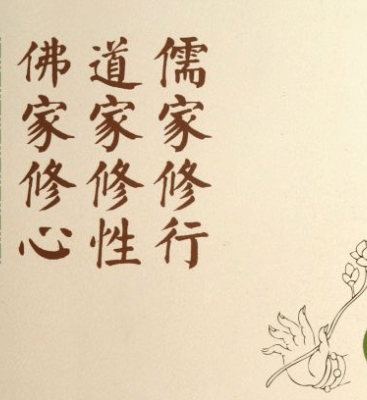 儒家修行
道家修性
佛家修心